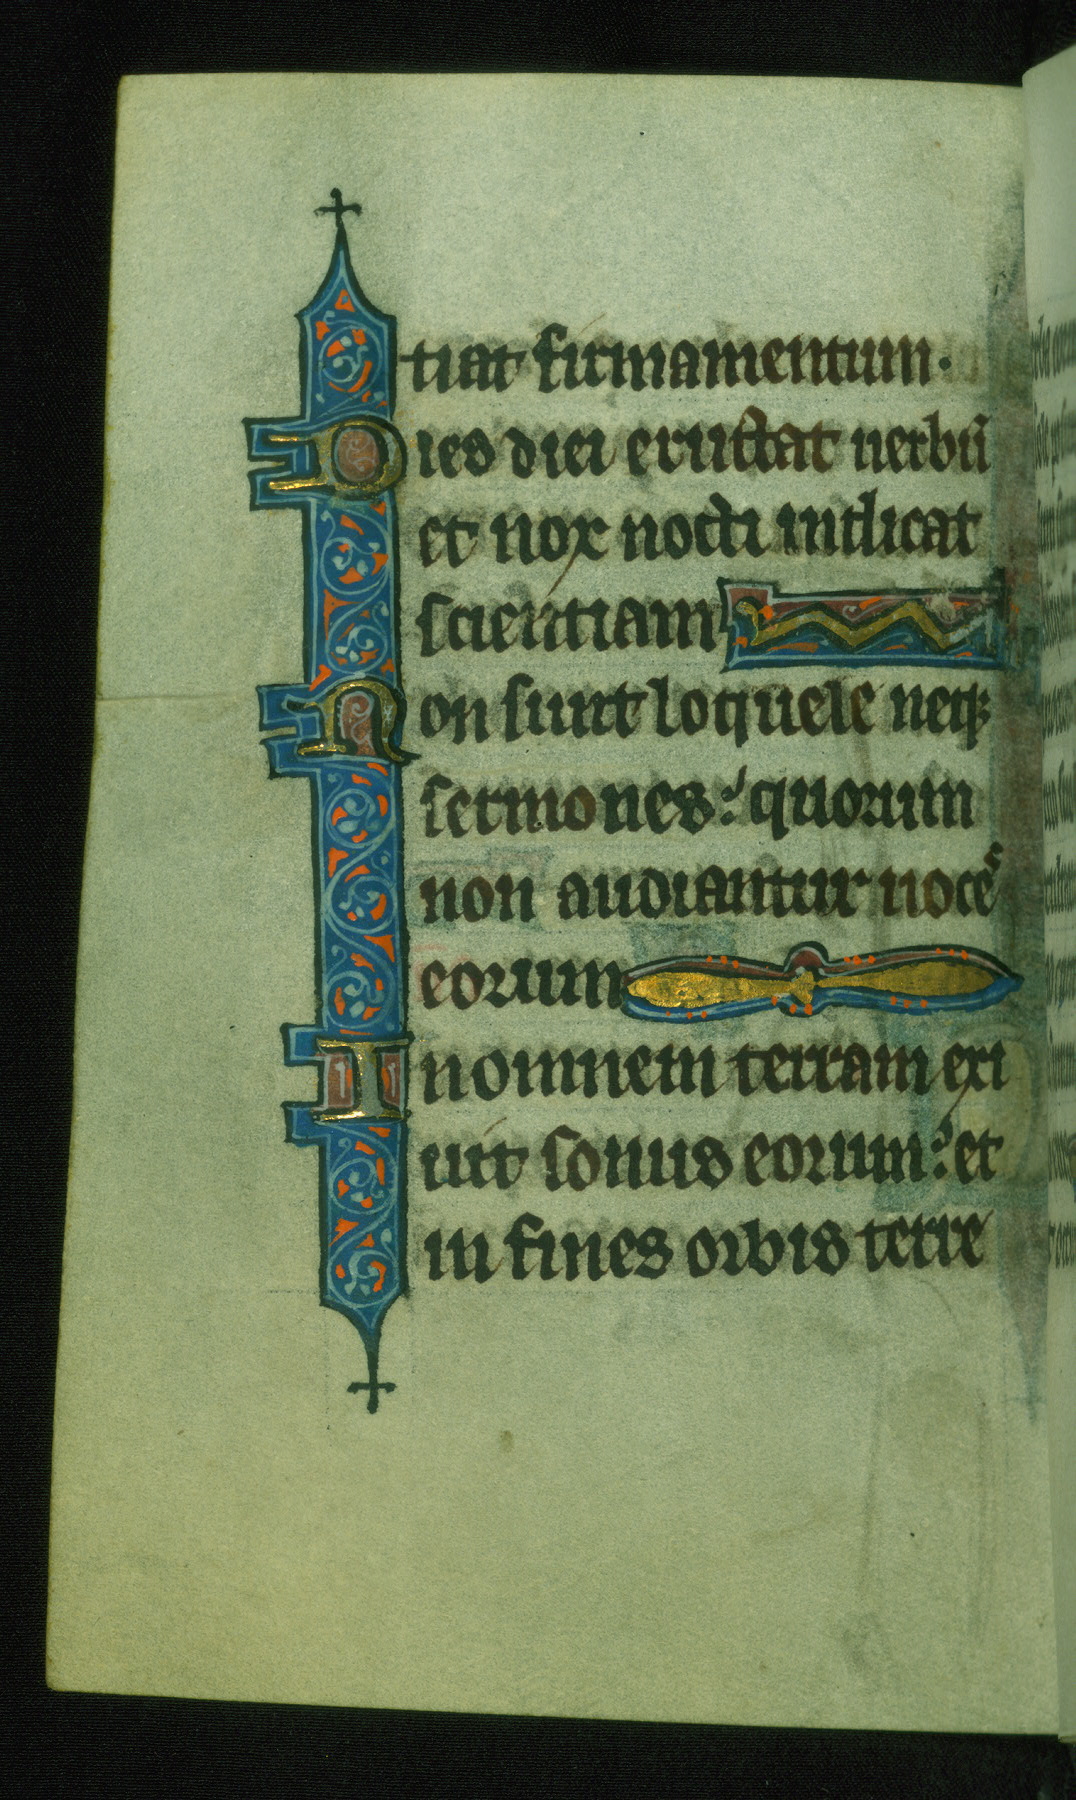 tiat firmamentum.
Dies diei eructat uerbū
et nox nocti indicat
scientiam
Non sunt loquele neqꝫ
sermones: quorum
non audiantur uoces
eorum
In omnem terram exi
uit sonus eorum: et
in fines orbis terre